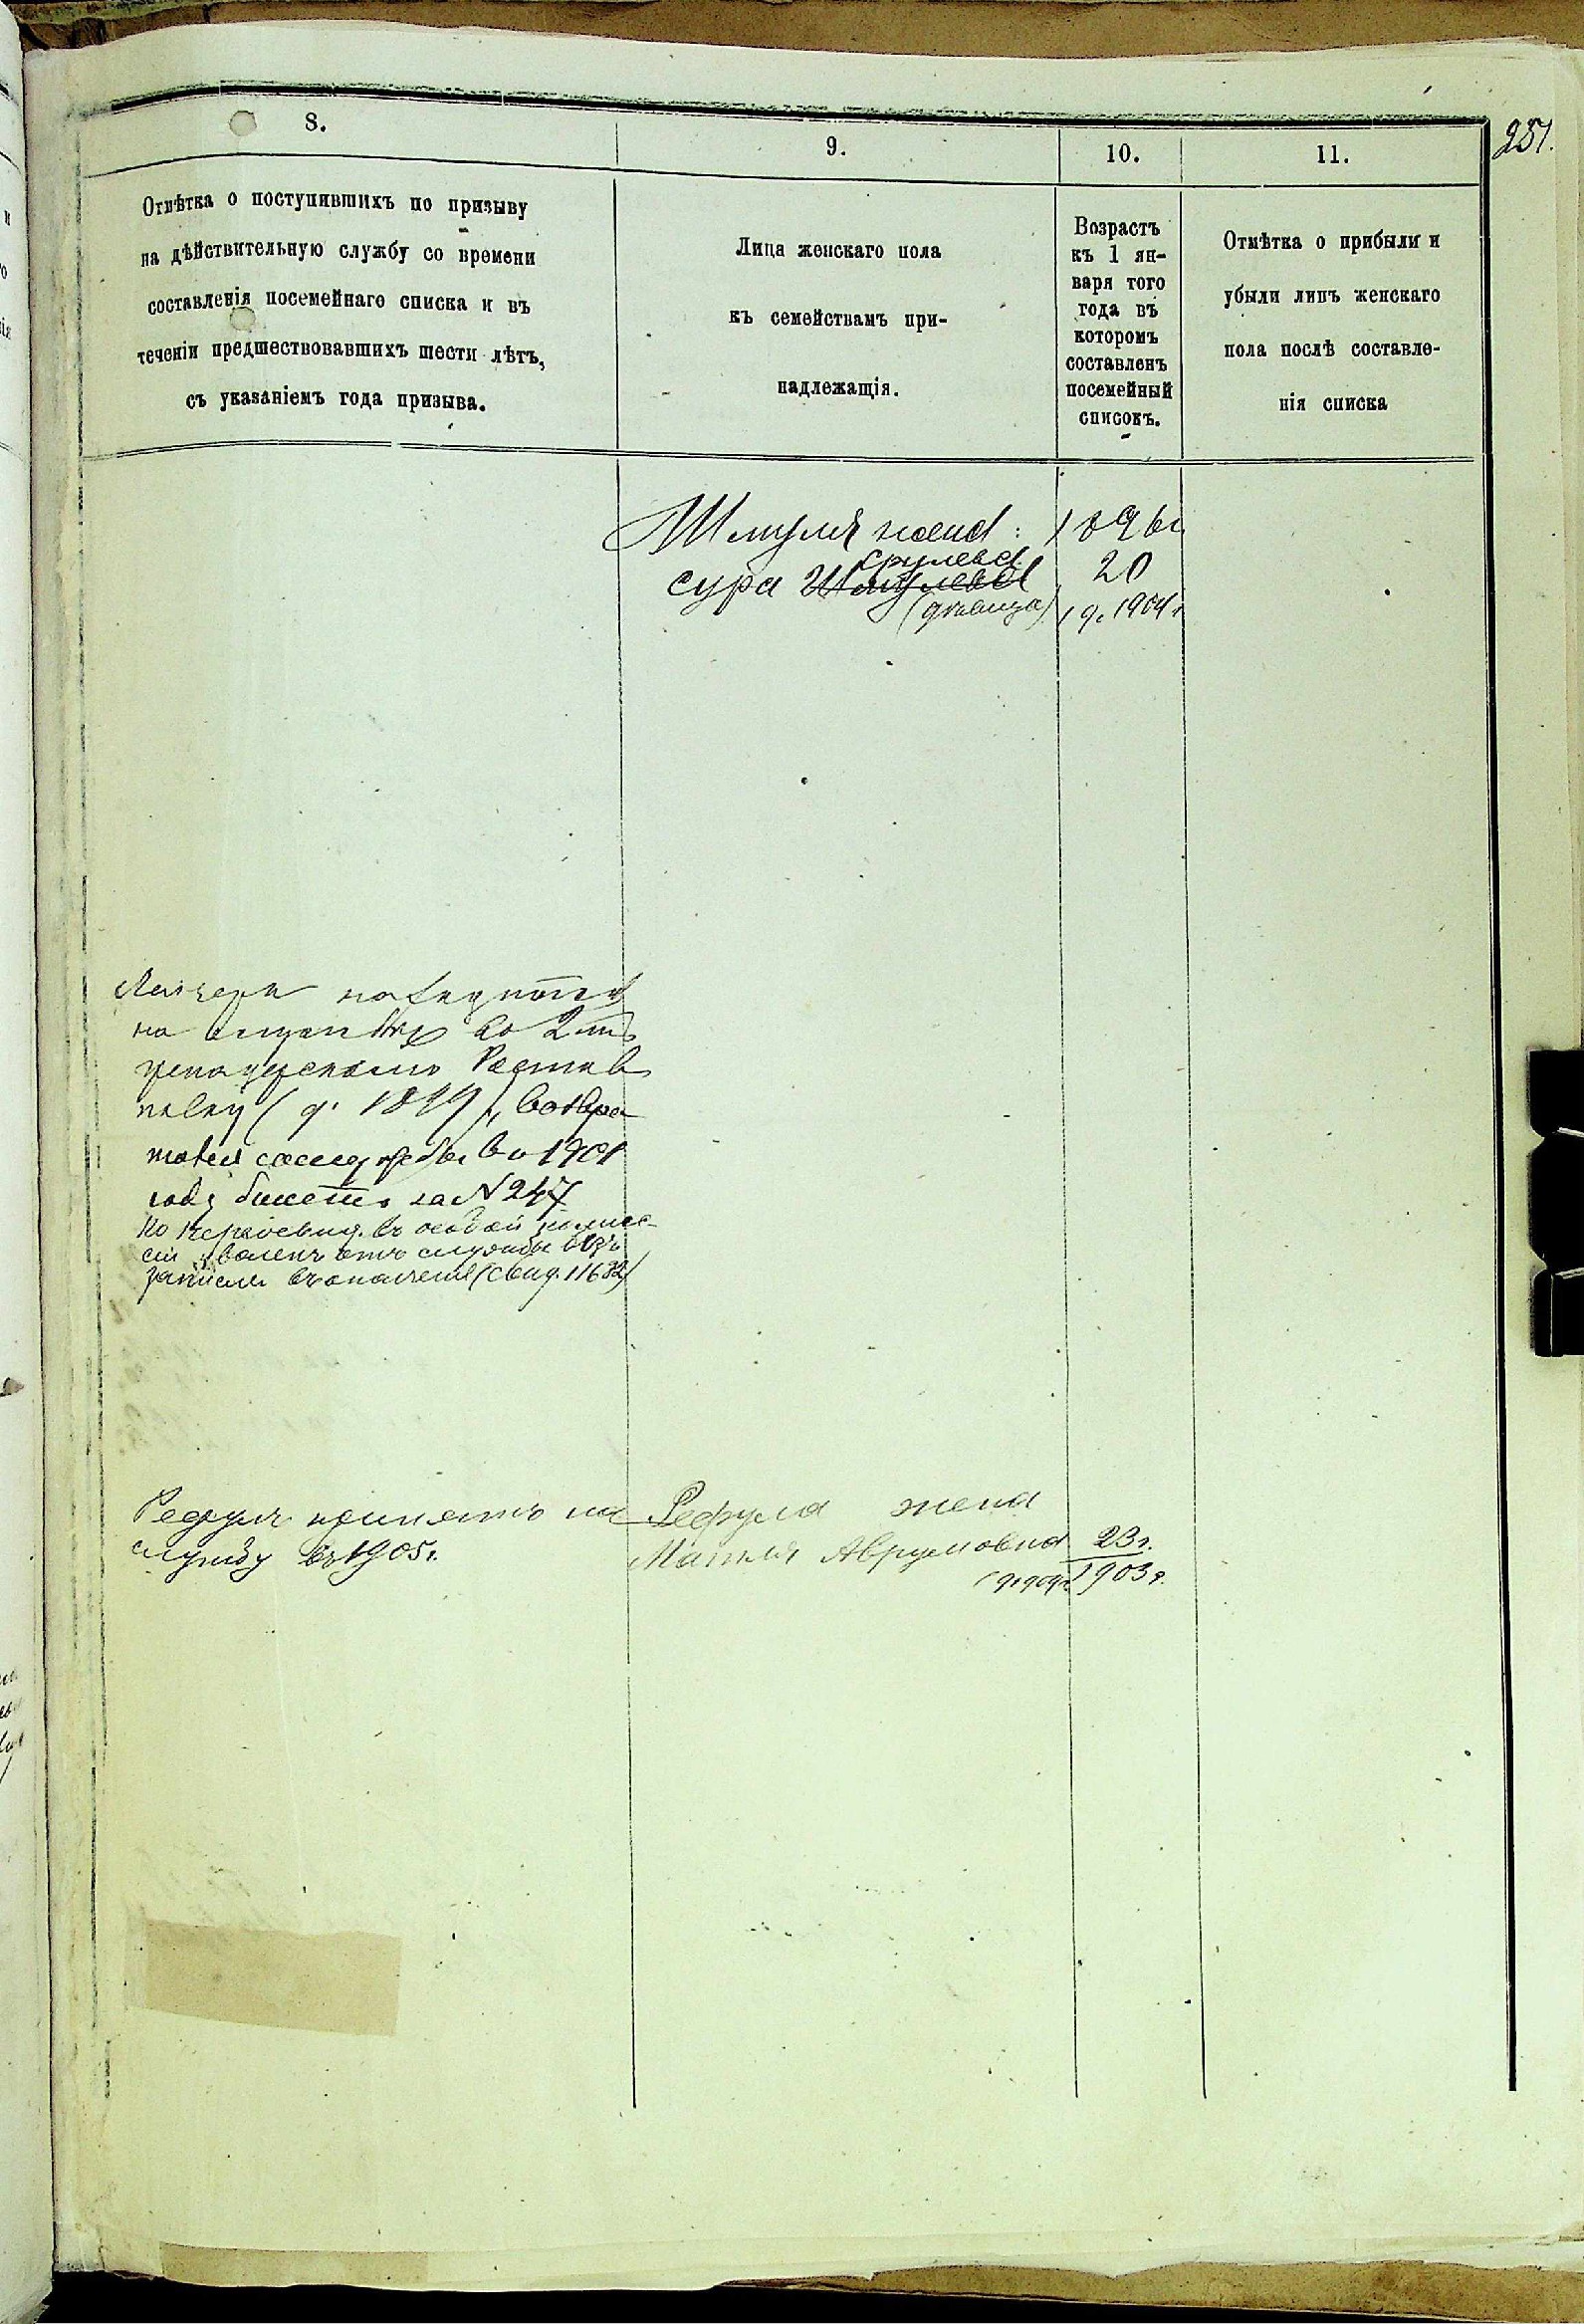 251.
8.
9.
10.
11.
Отмѣтка о поступившихъ по призыву
на дѣйствительную службу со времени
составленія посемейнаго списка и въ
теченіи предшествовавшихъ шести лѣтъ,
съ указаніемъ года призыва.
Лица женскаго пола
къ семействамъ при-
надлежащія.
Возрастъ
къ 1 ян-
варя того
года въ
котором
составленъ
посемейный
списокъ.
Отмѣтка о прибыли и
убыли лицъ женскаго
пола послѣ составле-
нія списка
Шмуля жена:
Срулева
Сура
(дѣвица)
20
1904 г
на службѣ во 2 мъ
гренадерскомъ Ростов
полку (д. 1899), возвра
со службы въ 1901
году билетъ за N 247
По переосвид. въ особой комис-
сіи уволенъ отъ службы безъ
ополченіе (свид. 11632)
Рефулъ принятъ на
службу въ 1905 г.
Рефула жена
Матля Аврумовна 23 г.
1903 г.